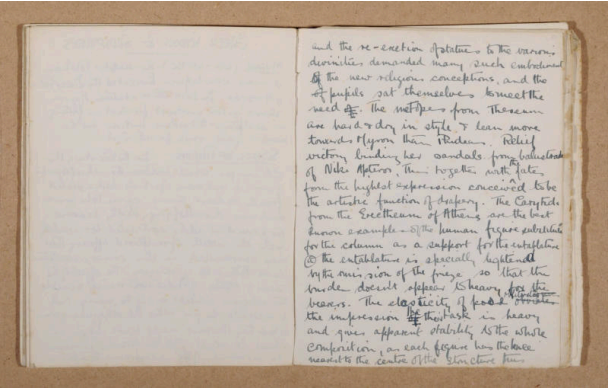 and the re-erection of statues to the various
divinities demanded many such embodiment
of the new religious conceptions, and the
pupils sat themselves to meet the
need. The metopes from Theseum
are hard & dry in style & lean more
towards Myron than Phideas. Relief
victory binding her sandals from balustrade
of Nike Apteros, this together with the fates
form the highest expression conceived to be
the artistic function of drapery. The Caryatids
from the Erectheum of Athens are the best
known example of the human figure substitute
for the column as a support for the entablature
the entablature is specially lightened
by the omission of the frieze, so that the
burden doesn't appear to heavy for the
bearers. The elasticity of
the impression task is heavy
and gives apparent stability to the whole
composition, as each figure has the knee
nearest to the centre of the structure